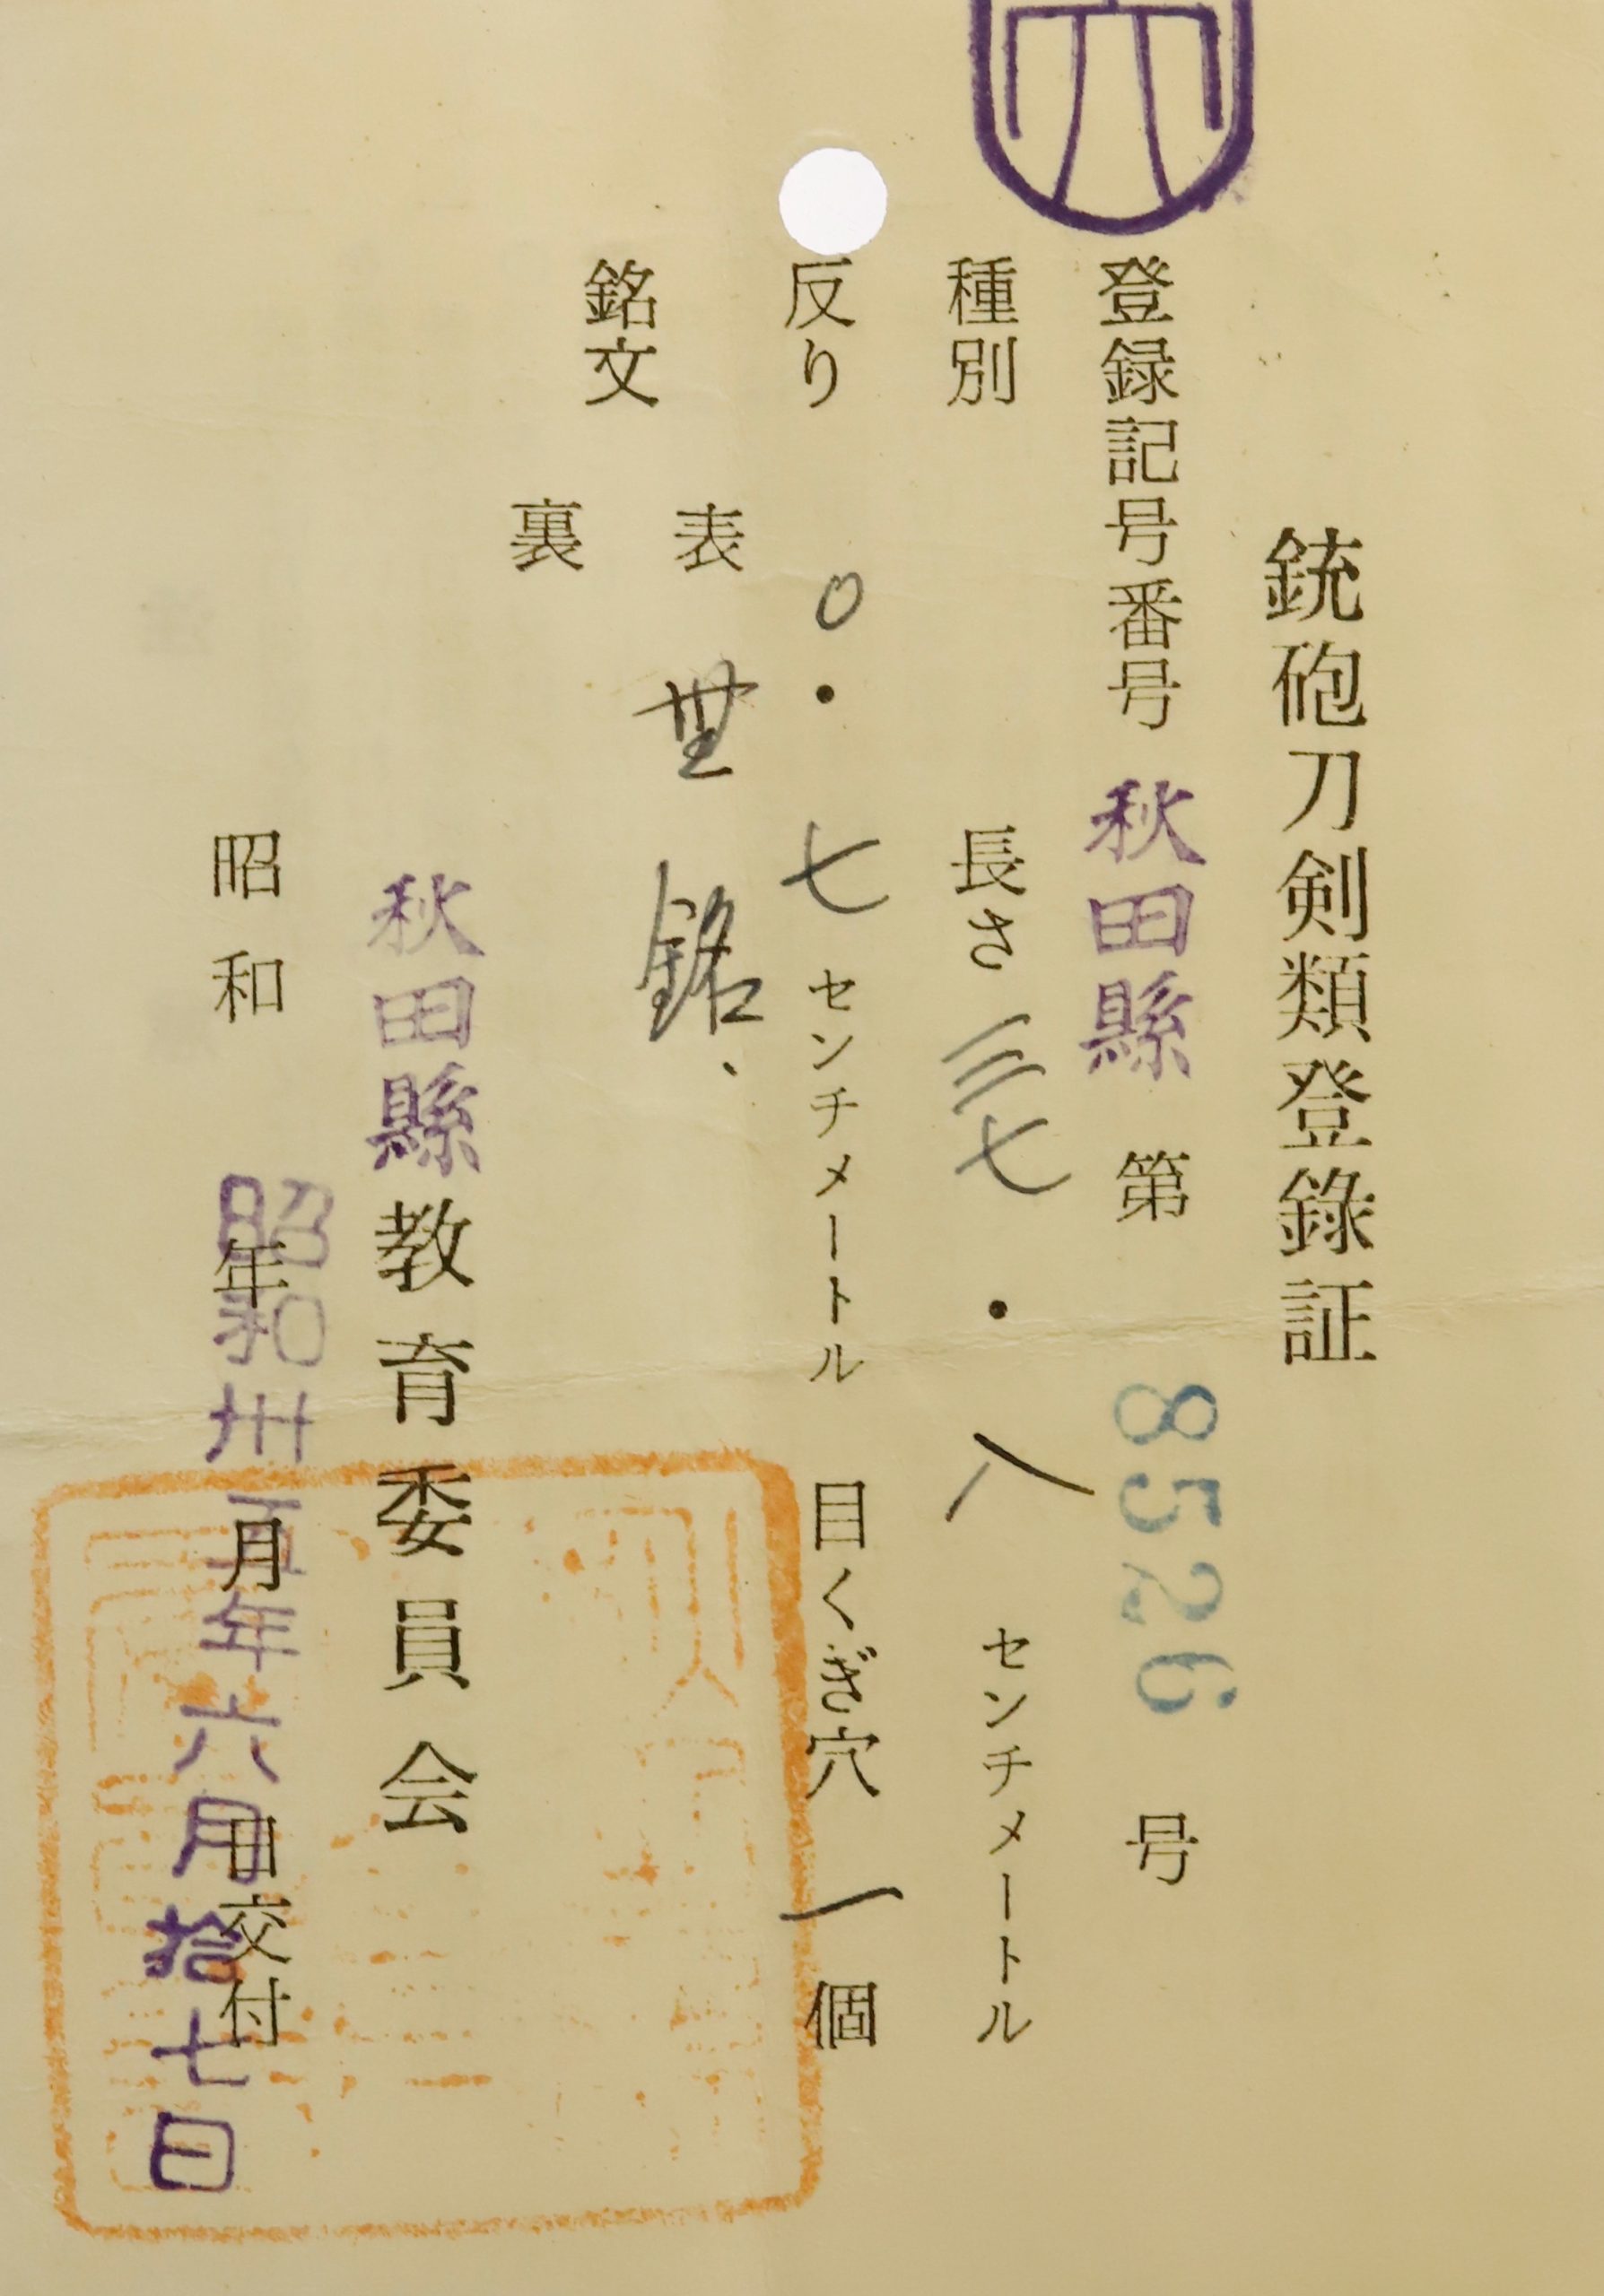 銃砲刀剣類登錄証
登録記号番号 秋田縣 第 8526 号
種別 長さ 三七・八 センチメートル
反り 〇・七 センチメートル 目くぎ穴 一 個
銘文
表 無銘、
裏
秋田縣教育委員会
昭和 年 月 日交付
昭和卅五年六月拾七日